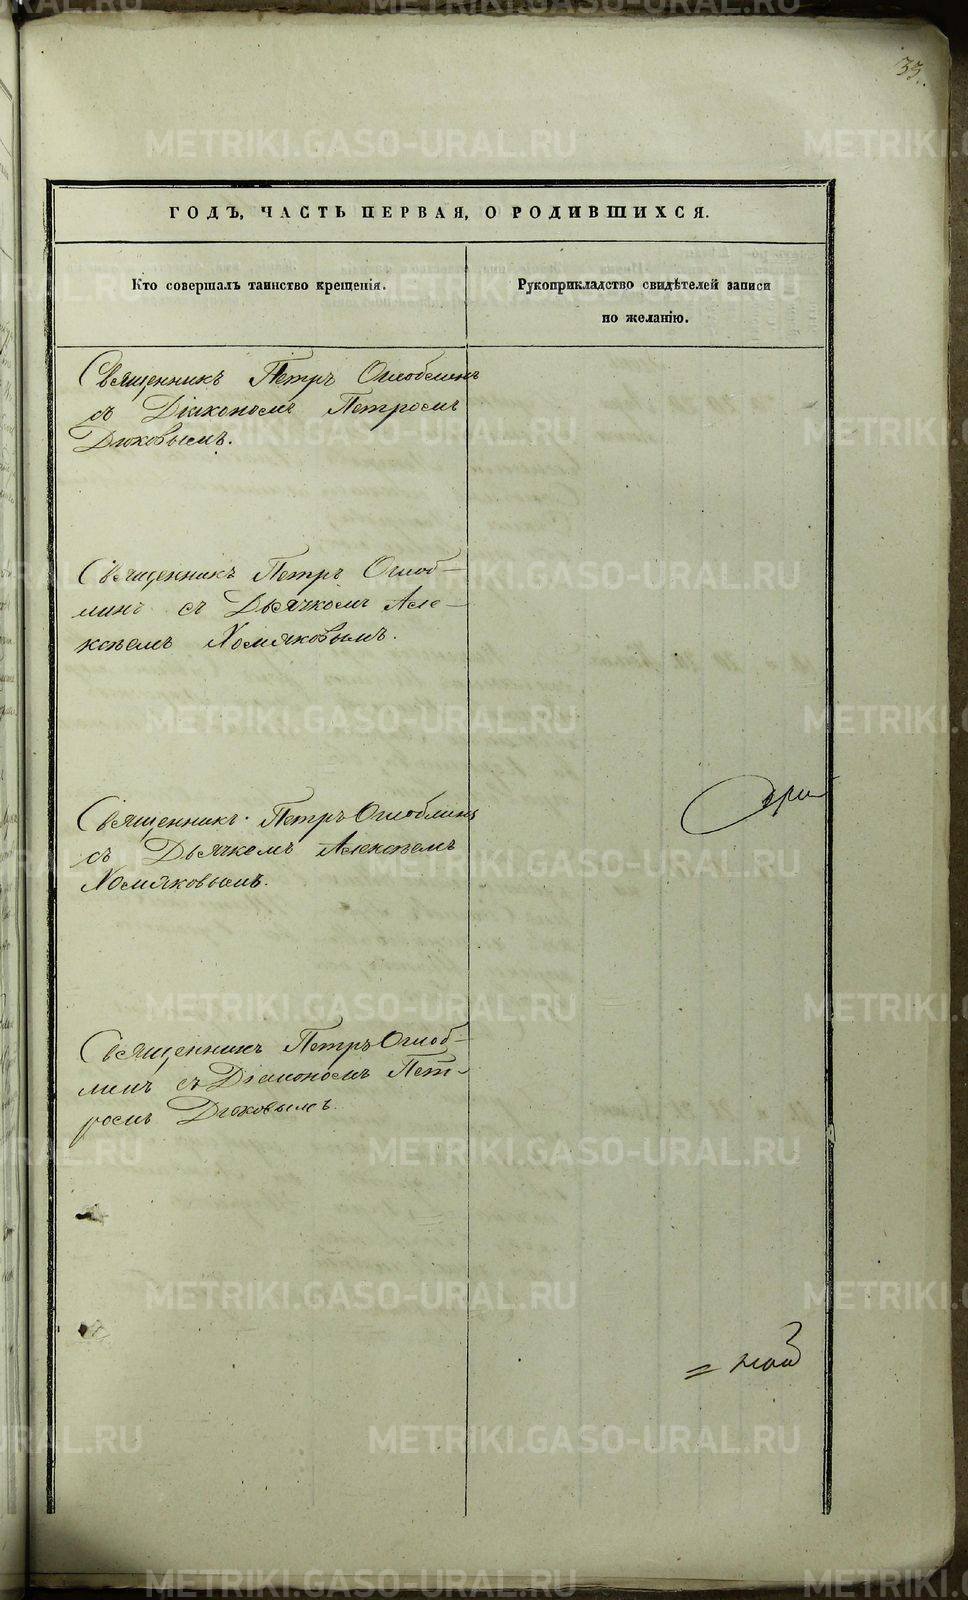 33.
ГОДЪ, ЧАСТЬ ПЕРВАЯ, О РОДИВШИХСЯ.
Кто совершалъ таинство крещенія.
Рукоприкладство свидѣтелей записи
по желанію.
Священникъ Петръ Оглоблинъ
съ Діакономъ Петромъ
Дюковымъ.
Священникъ Петръ Оглоб-
линъ съ Дьячкомъ Але-
ксѣемъ Хомяковымъ.
Священникъ Петръ Оглоблинъ
съ Дьячкомъ Алексѣемъ
Хомяковымъ.
Священникъ Петръ Оглоб-
линъ съ Діакономъ Пет-
ромъ Дюковымъ.
METRIKI.GASO-URAL.RU